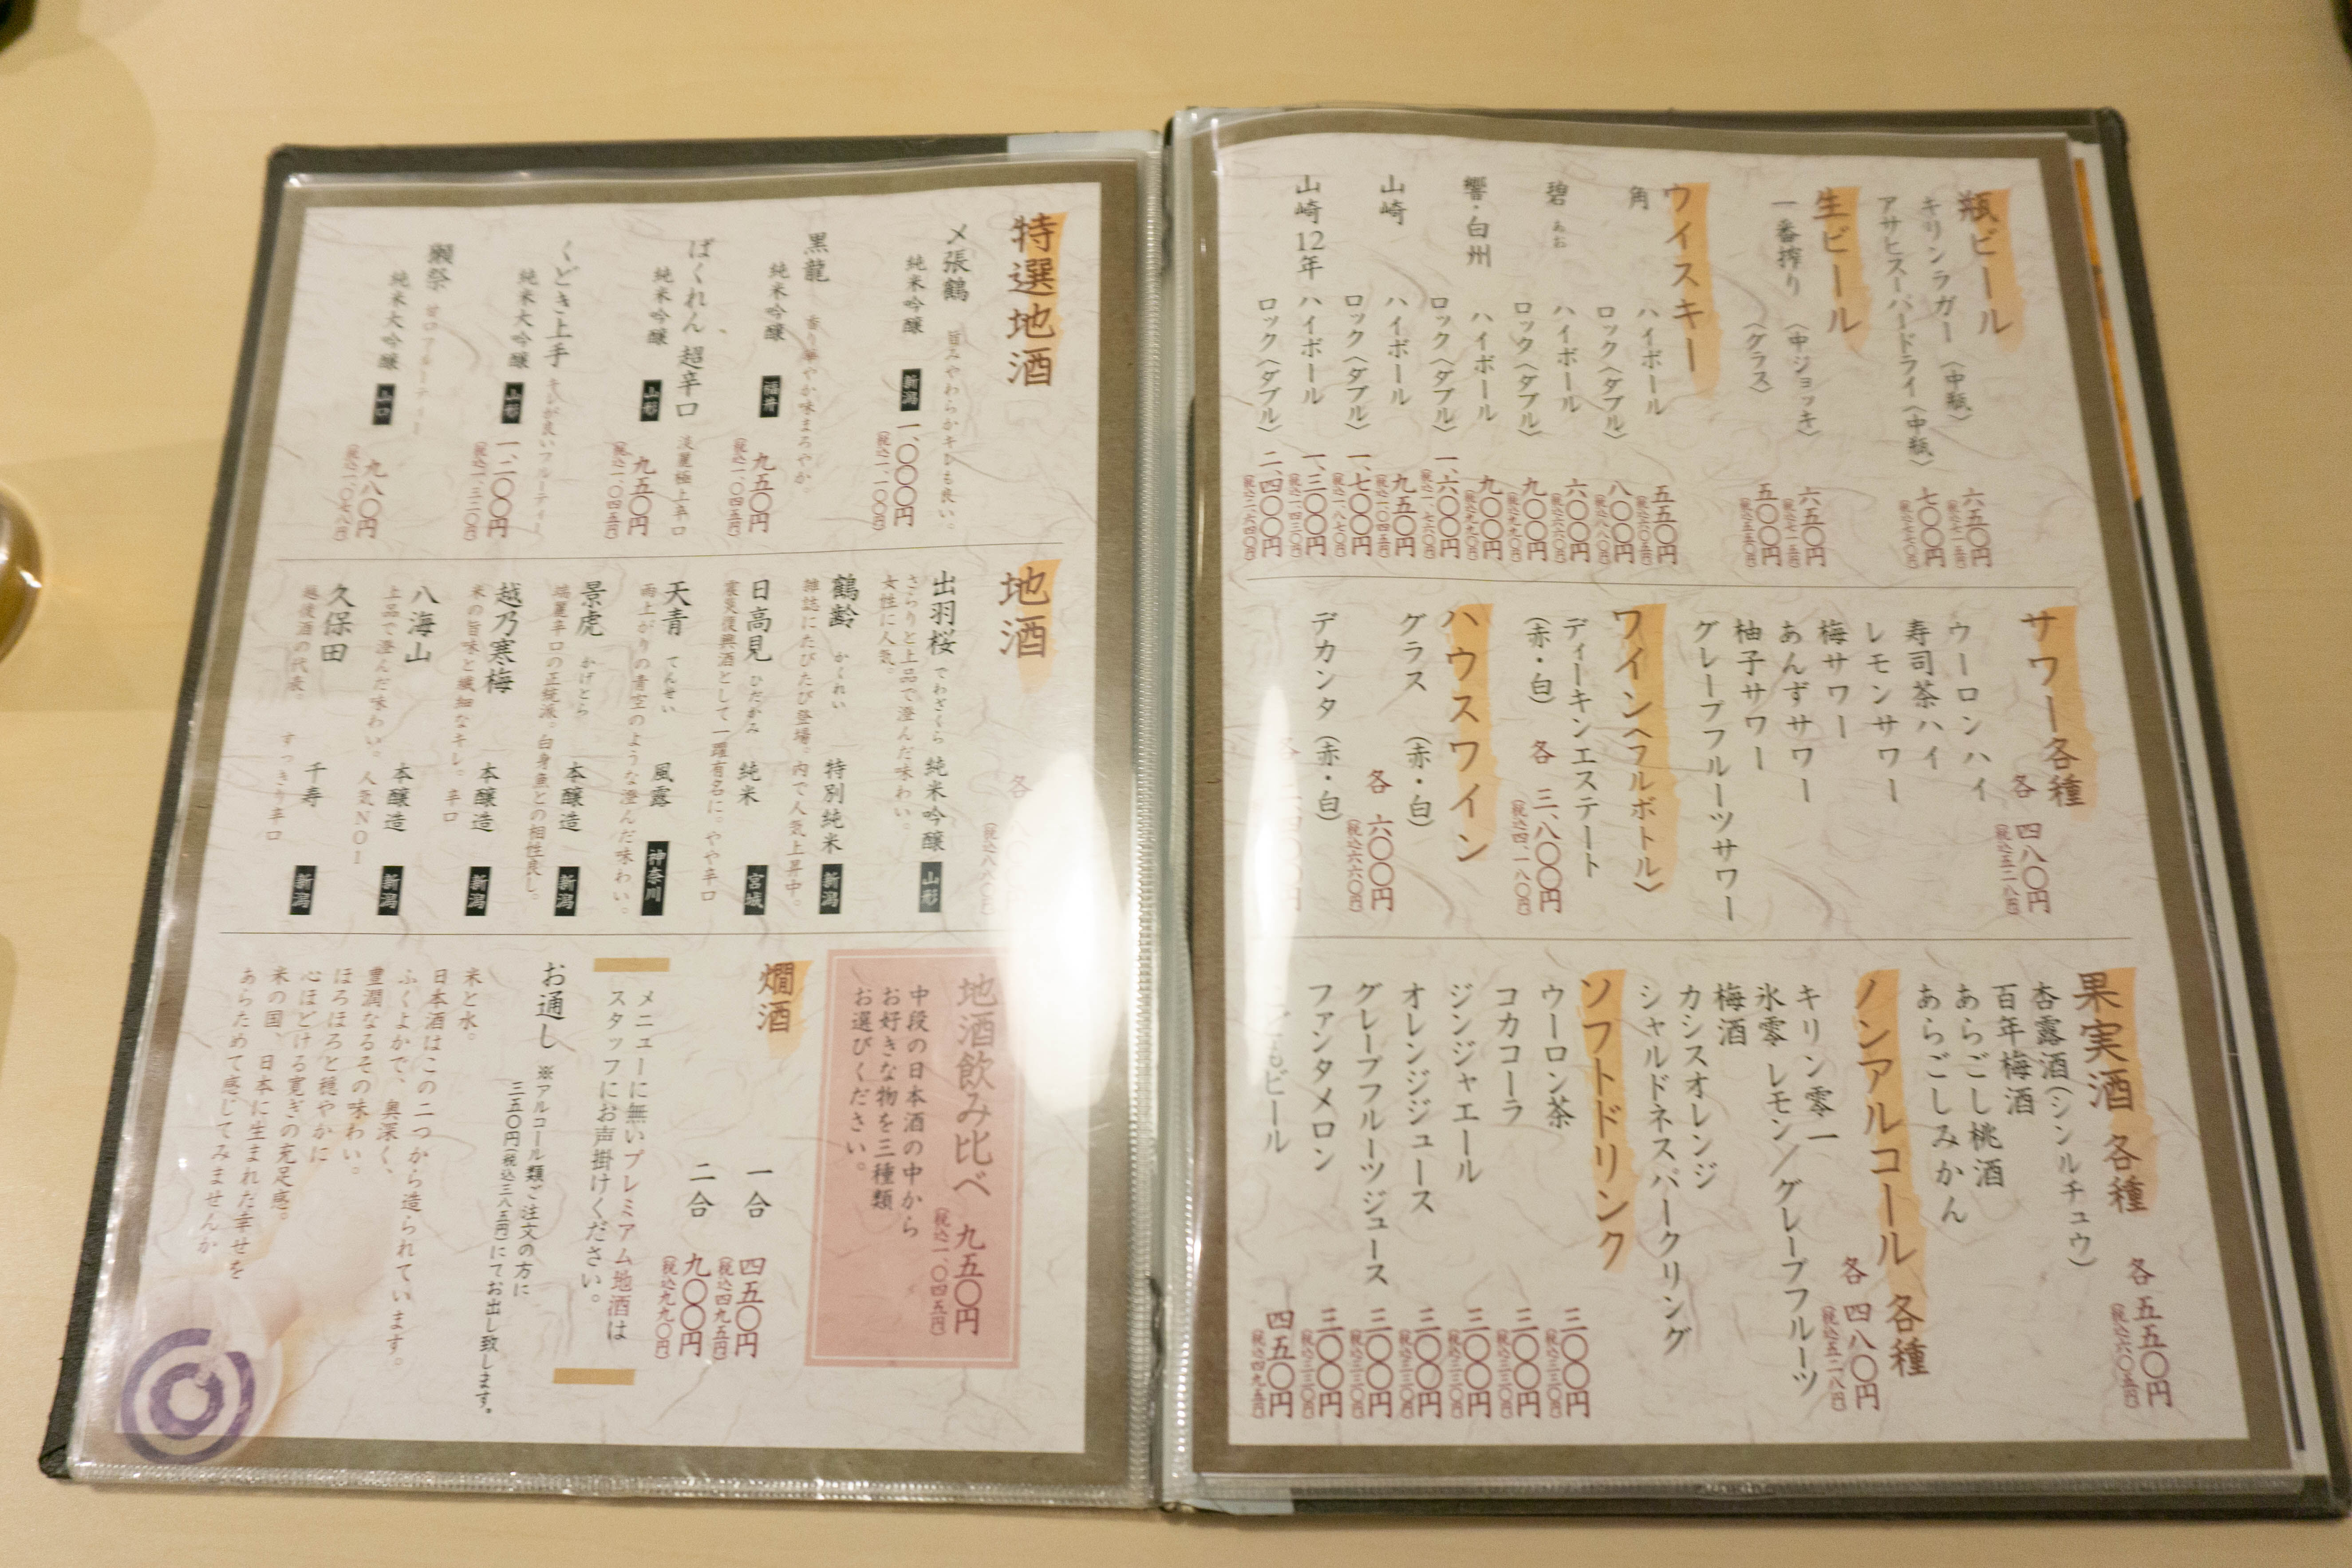 瓶ビール
キリンラガー（中瓶） 六五〇円
（税込七一五円）
アサヒスーパードライ（中瓶） 七〇〇円
（税込七七〇円）
生ビール
一番搾り （中ジョッキ） 六五〇円
（税込七一五円）
（グラス） 五〇〇円
（税込五五〇円）
ウイスキー
角 ハイボール 五五〇円
（税込六〇五円）
ロック（ダブル） 八〇〇円
（税込八八〇円）
碧 あお ハイボール 六〇〇円
（税込六六〇円）
ロック（ダブル） 九〇〇円
（税込九九〇円）
響・白州 ハイボール 九〇〇円
（税込九九〇円）
ロック（ダブル） 一、六〇〇円
（税込一、七六〇円）
山崎 ハイボール 九五〇円
（税込一、〇四五円）
ロック（ダブル） 一、七〇〇円
（税込一、八七〇円）
山崎12年 ハイボール 一、三〇〇円
（税込一、四三〇円）
ロック（ダブル） 二、四〇〇円
（税込二、六四〇円）
サワー各種
各 四八〇円
（税込五二八円）
ウーロンハイ
寿司茶ハイ
レモンサワー
梅サワー
あんずサワー
柚子サワー
グレープフルーツサワー
ワイン（フルボトル）
ディーキンエステート
（赤・白） 各 三、八〇〇円
（税込四、一八〇円）
ハウスワイン
グラス （赤・白）
各 六〇〇円
（税込六六〇円）
デカンタ（赤・白）
各
果実酒 各種
各 五五〇円
（税込六〇五円）
杏露酒（シンルチュウ）
百年梅酒
あらごし桃酒
あらごしみかん
ノンアルコール 各種
各 四八〇円
（税込五二八円）
キリン零一
氷零 レモン／グレープフルーツ
梅酒
カシスオレンジ
シャルドネスパークリング
ソフトドリンク
ウーロン茶 三〇〇円
（税込三三〇円）
コカコーラ 三〇〇円
（税込三三〇円）
ジンジャエール 三〇〇円
（税込三三〇円）
オレンジジュース 三〇〇円
（税込三三〇円）
グレープフルーツジュース 三〇〇円
（税込三三〇円）
ファンタメロン 三〇〇円
（税込三三〇円）
もビール 四五〇円
（税込四九五円）
特選地酒
〆張鶴 旨みやわらかキレも良い。
純米吟醸 新潟 一、〇〇〇円
（税込一、一〇〇円）
黒龍 香り華やか味まろやか。
純米吟醸 福井 九五〇円
（税込一、〇四五円）
ばくれん 超辛口 淡麗極上辛口
純米吟醸 山形 九五〇円
（税込一、〇四五円）
くどき上手 キレが良いフルーティー
純米大吟醸 山形 一、二〇〇円
（税込一、三二〇円）
獺祭 甘口フルーティー
純米大吟醸 山口 九八〇円
（税込一、〇七八円）
地酒
各
出羽桜 でわざくら 純米吟醸 山形
さらりと上品で澄んだ味わい。
女性に人気。
鶴齢 かくれい 特別純米 新潟
雑誌にたびたび登場。内で人気上昇中。
日高見 ひだかみ 純米 宮城
震災復興酒として一躍有名に。やや辛口
天青 てんせい 風露 神奈川
雨上がりの青空のような澄んだ味わい。
景虎 かげとら 本醸造 新潟
端麗辛口の正統派。白身魚との相性良し。
越乃寒梅 本醸造 新潟
米の旨味と繊細なキレ。辛口
八海山 本醸造 新潟
上品で澄んだ味わい。人気NO1
久保田 千寿 新潟
越後酒の代表。 すっきり辛口
地酒飲み比べ 九五〇円
（税込一、〇四五円）
中段の日本酒の中から
お好きな物を三種類
お選びください。
燗酒
一合 四五〇円
（税込四九五円）
二合 九〇〇円
（税込九九〇円）
メニューに無いプレミアム地酒は
スタッフにお声掛けください。
お通し ※アルコール類ご注文の方に
三五〇円（税込三八五円）にてお出し致します。
米と水。
日本酒はこの二つから造られています。
ふくよかで、奥深く、
豊潤なるその味わい。
ほろほろと穏やかに
心ほどける寛ぎの充足感。
米の国、日本に生まれた幸せを
あらためて感じてみませんか